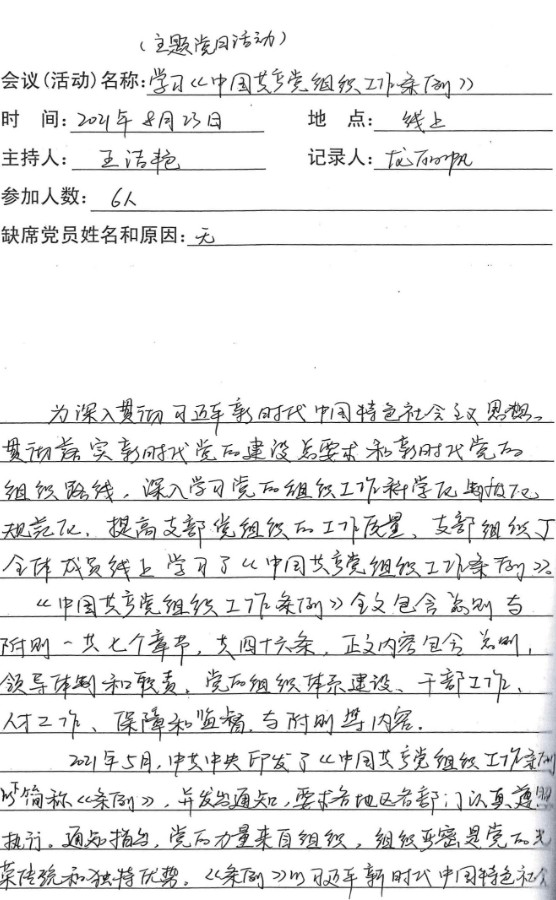 （主题党日活动）
会议(活动)名称:学习《中国共产党组织工作条例》
时 间:2021年8月23日 地 点: 线上
主持人: 王洁艳 记录人:
参加人数: 6人
缺席党员姓名和原因: 无
为深入贯彻习近平新时代中国特色社会主义思想。
贯彻落实新时代党的建设总要求和新时代党的
组织路线，深入学习党的组织工作科学化
规范化，提高支部党组织的工作质量，支部组织了
全体成员线上学习了《中国共产党组织工作条例》。
《中国共产党组织工作条例》全文包含总则与
附则一共七个章节，共四十六条，正文内容包含总则，
领导体制和职责、党的组织体系建设、干部工作、
人才工作、保障和监督、与附则等内容.
2021年5月，中共中央印发了《中国共产党组织工作条例
简称《条例》，并发出通知，要求各地区各部门认真遵照
执行。通知指出，党的力量来自组织，组织严密是党的光
荣传统和独特优势。《条例》以习近平新时代中国特色社会